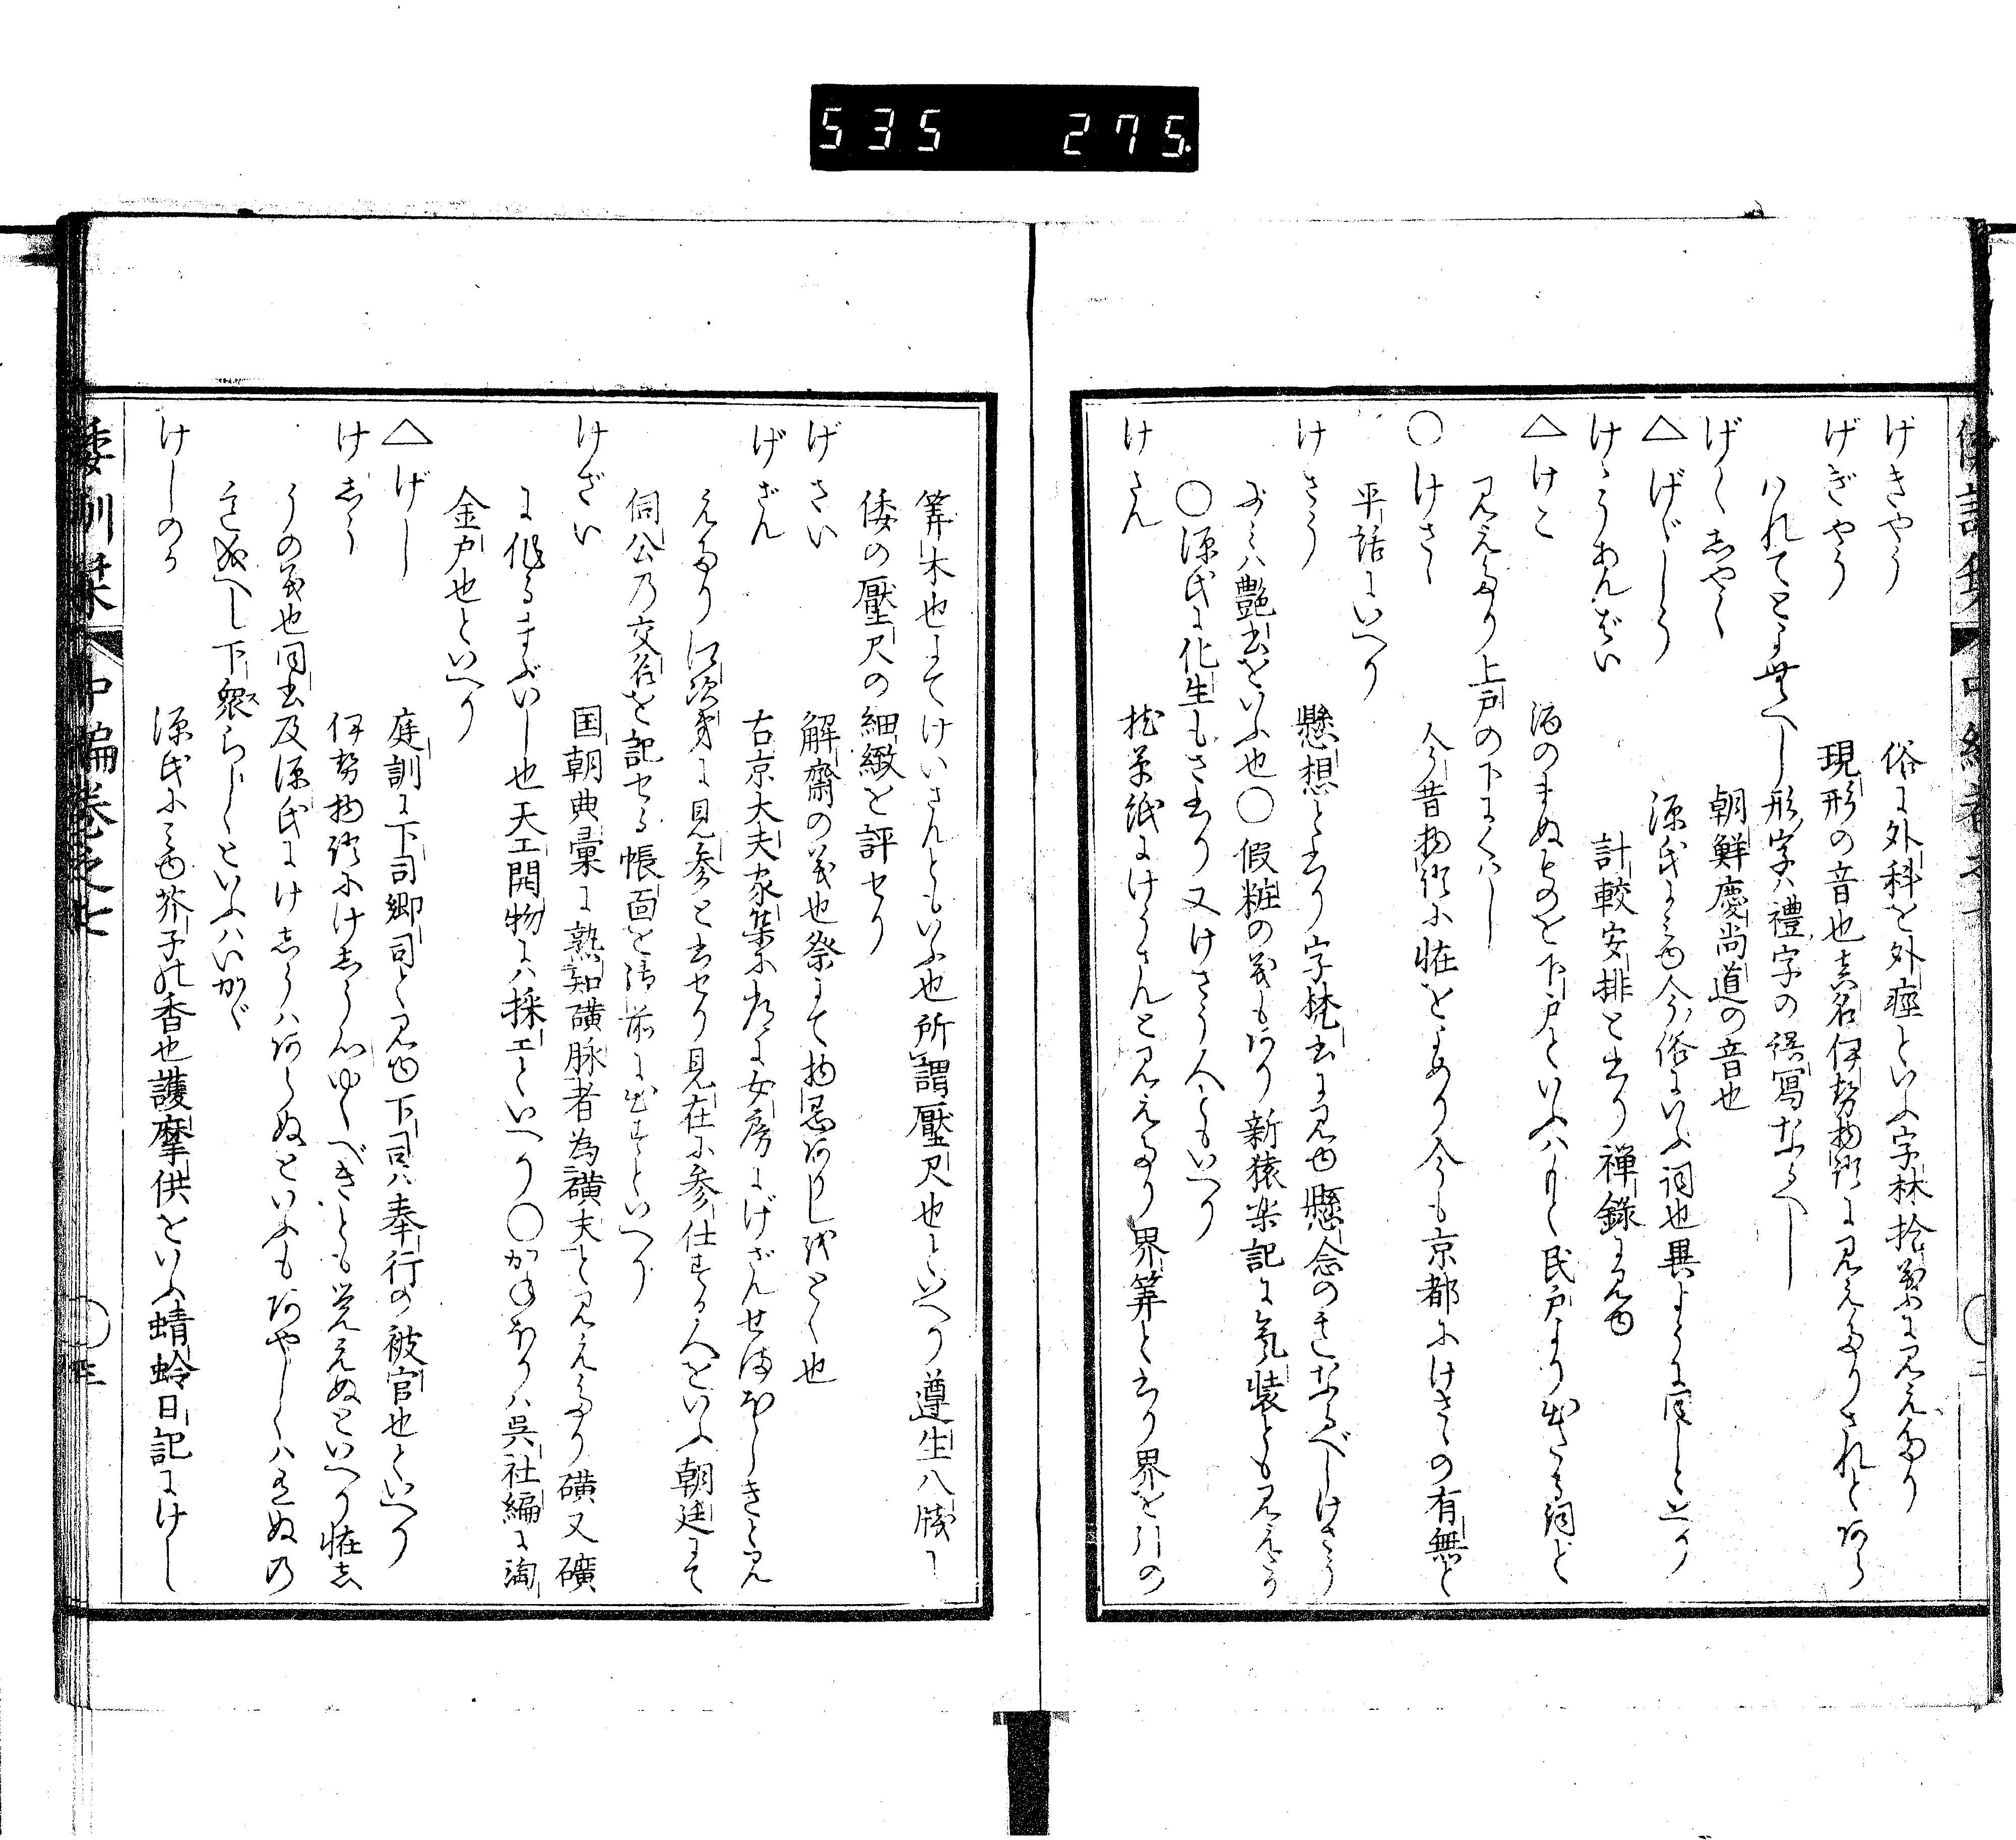 535 275.
けきやう 俗に外科を外痙といふ字林拾葉に見えたり
げぎやう 現形の音也真名伊勢物語に見えたりされとあら
はれてとよむへし形字ハ禮字の誤寫なるへし
げくしやく 朝鮮慶尚道の音也
△げゞしう 源氏にみゆ今俗にいふ詞也異ように
けうあんばい 計較安排と書り禅録に見ゆ
△けこ 酒のまぬものを下戸といふハもと民戸より出たる詞ど
見えたり上戸の下にくハし
○けさく 今昔物語に恠をよめり今も京都にけさくの有無ど
平話にいへり
けさう 懸想と書り字梵書に見ゆ懸念のきなるべしけさう
ぶミハ艶書をいふ也○假粧の義もあり新猿楽記に氣装とも見えたり
○源氏に化生もさ書り又けさう人ともいへり
けさん 枕草紙にけうさんと見えたり界筭と書り界を引の
筭木也よてけいさんともいふ也所謂壓尺也といへり遵生八牋に
倭の壓尺の細緻を評せり
げさい 解齋の義也祭にて物忌ありしをとく也
げざん 右京大夫家集に九月に女房にげざんせまほしきと見
えたり江次第に見参と書せり見在に参仕する人をいふ朝廷にて
伺公乃交名を記せる帳面を御前に出すといへり
けざい 国朝典彙に熟知礦脉者為礦夫と見えたり礦又礦
に作るまぶいし也天工開物にハ採工といへり○かねほりハ呉社編に淘
金戸也といへり
△げし 庭訓に下司郷司と見ゆ下司ハ奉行の被官也といへり
けしう 伊勢物語にけしう心ゆくべきとも覚えぬといへり恠し
うの義也同書及源氏にけしうハあらぬといふもあやしくハ見えぬ乃
意成へし下衆らしくといふハいかゞ
けしのか 源氏にみゆ芥子の香也護摩供をいふ蜻蛉日記にけし
倭訓栞 中編巻之七